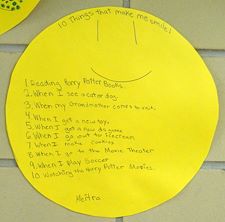 10 Things that make me smile!
1. Reading Harry Potter Books.
2. When I see a cat or dog.
3. When my Grandmother comes to visit.
4. When I get a new toy.
5. When I get a new ds game
6. When I go out to Icecream
7. When I make cookies
8. When I go to the Movie Theater
9. When I play Soccer
10. Watching the Harry Potter Movies.